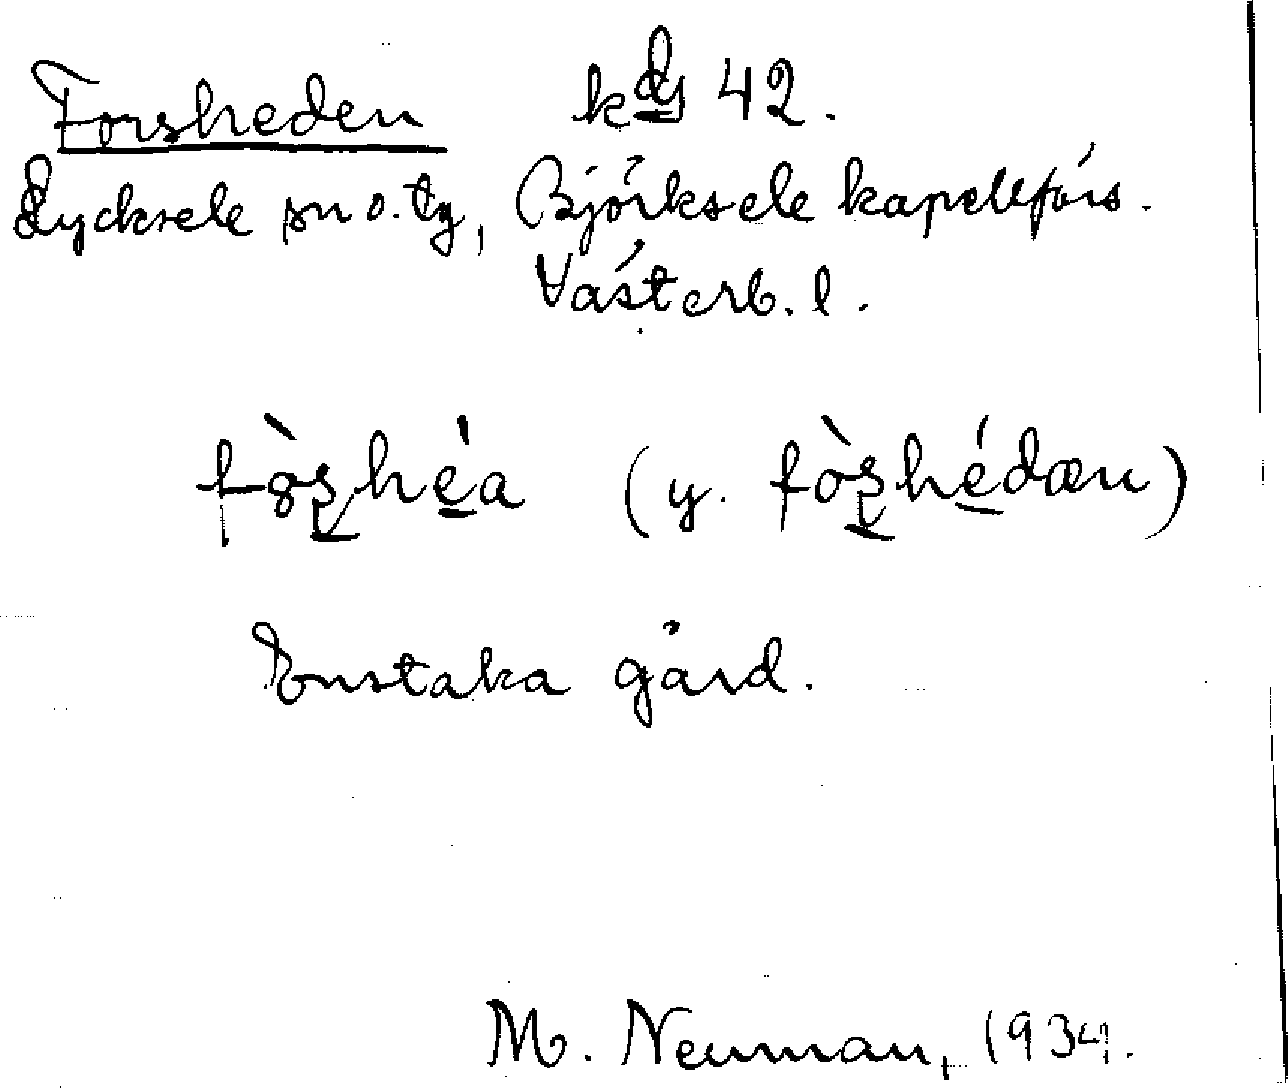 Forsheden kdg 42.
Lycksele sn o. tg, Björksele kapellförs.
Västerb. l.
fòs̱hé̱a (y. fòs̱hé̱dæn)
Enstaka gård.
M. Neuman, 1934.